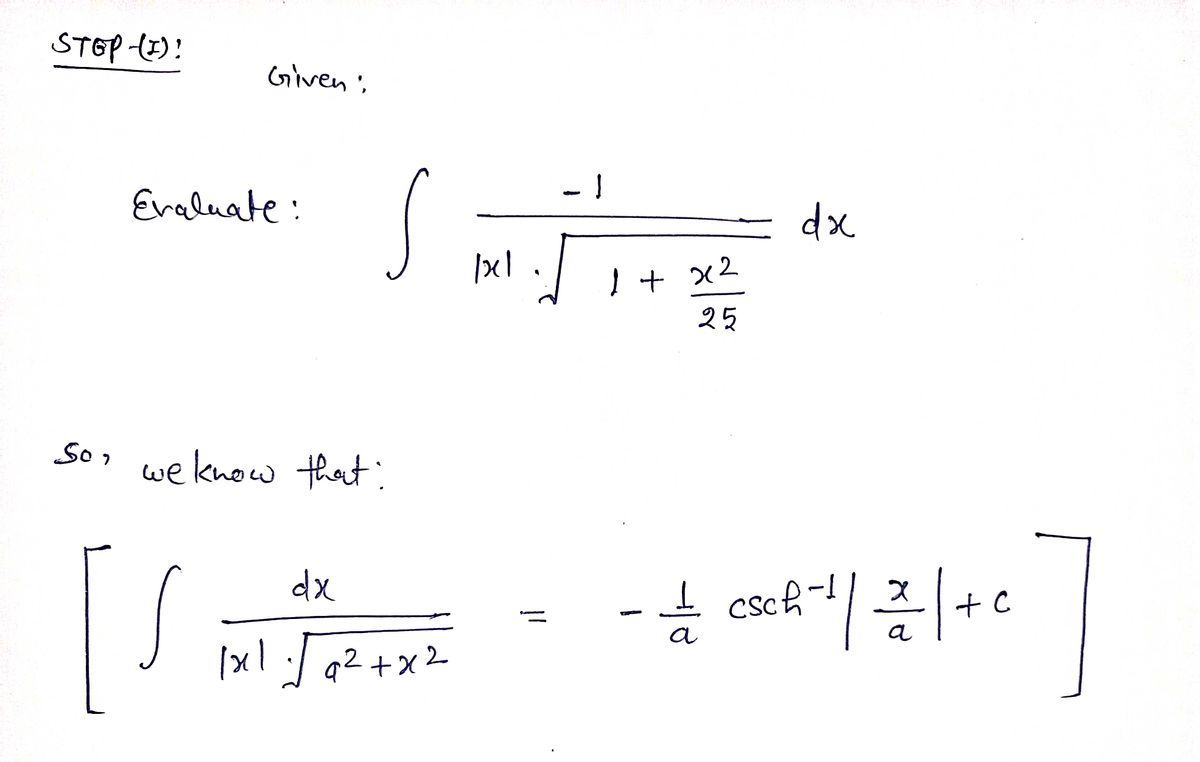 STEP-(I):
Given;
Evaluate: ∫ -1 / (|x| · √(1 + x²/25)) dx
So, we know that:
[ ∫ dx / (|x| · √(a² + x²)) = - 1/a csch⁻¹ |x/a| + c ]